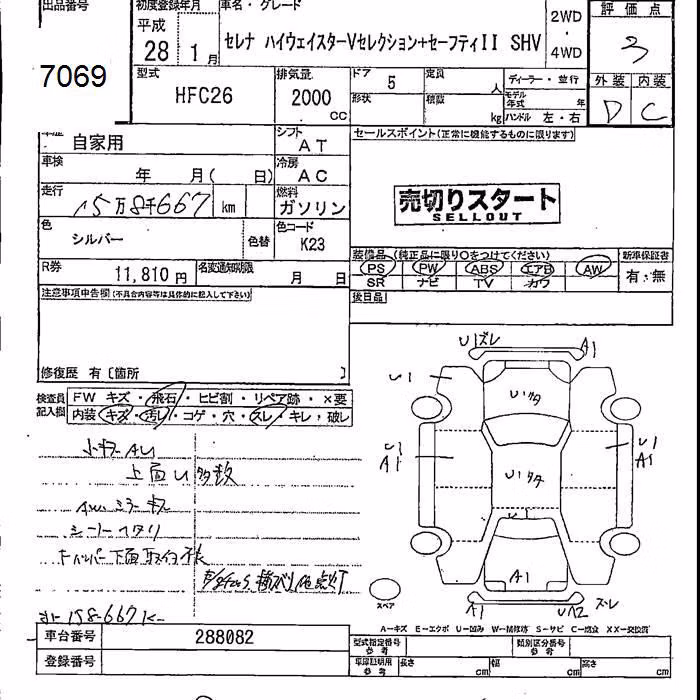 出品番号
7069
初度登録年月
平成
28 1月
車名・グレード
セレナ ハイウェイスターVセレクション+セーフティII SHV
2WD
・
4WD
評価点
3
外装 内装
D C
型式
HFC26
排気量
2000
CC
ドア
5
定員
人
形状
積載
kg
ディーラー・並行
モデル
年式
年
ハンドル 左・右
車歴
自家用
シフト
AT
車検
年 月( 日)
冷房
AC
走行
15万8千667 km
燃料
ガソリン
色
シルバー
色替
色コード
K23
R券
11,810 円
名変通知期限
月 日
セールスポイント(正常に機能するものに限ります)
売切りスタート
SELLOUT
装備品 (純正品に限り○をつけてください)
PS PW ABS エアB AW
SR ナビ TV カワ
新車保証書
有・無
後日品
注意事項申告欄(不具合内容等は具体的に記入して下さい)
修復歴 有〔箇所 〕
検査員
記入欄
FW キズ・飛石・ヒビ割・リペア跡・×要
内装・キズ・汚れ・コゲ・穴・スレ・キレ・破レ
小キズAU
上面U多数
AWミラーキズ
シートヘタリ
バンパー下面取付
158-667K
U1ズレ A1
U1
Uリタ
U1
A1
Uリタ
U1
A1
U1
A1
A1 UA2 ズレ
スペア
A－キズ E－エクボ U－凹み W－補修跡 S－サビ C－腐食 XX－交換済
車台番号
288082
登録番号
型式指定番号
参考
類別区分番号
参考
車庫証明用
参考
長さ cm 幅 cm 高さ cm